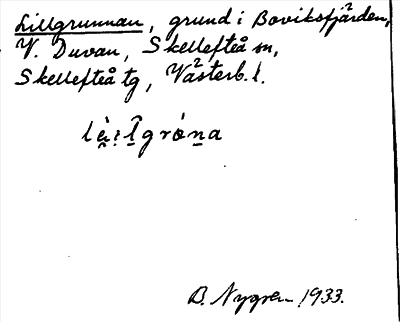 Lillgrunnan, grund i Boviksfjärden,
V. Duvan, Skellefteå sn,
Skellefteå tg, Västerb. l.
B. Nygren 1933.